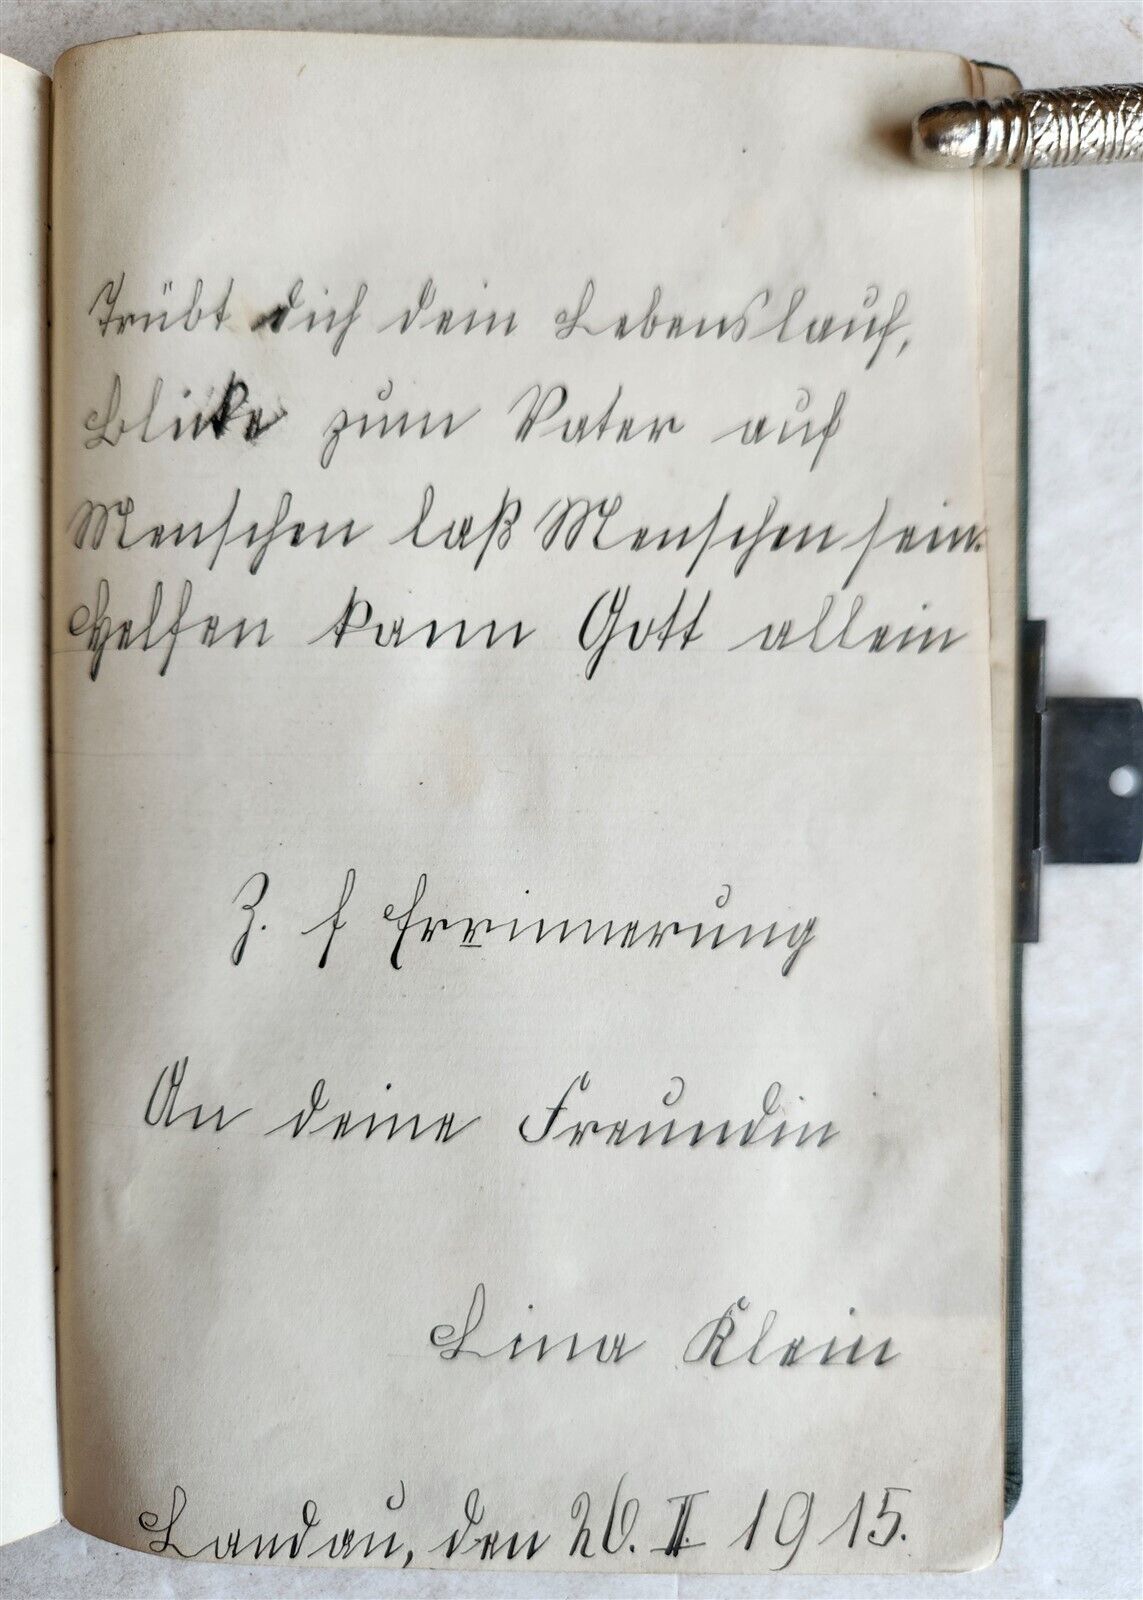 Trübt dich dein Lebenslauf,
Blicke zum Vater auf
Menschen laß Menschen sein.
Helfen kann Gott allein
Z. f Errinnerung
An deine Freundin
Lina Klein
Landau, den 26. II. 1915.